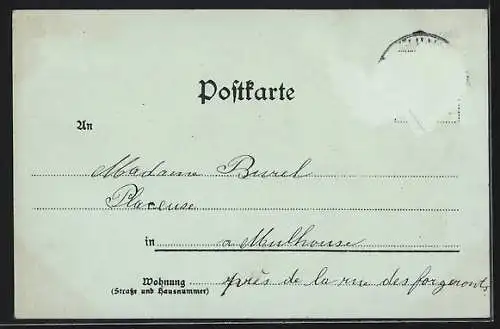 Postkarte
An
Madame Burel
Placeuse
in a Mulhouse
Wohnung près de la rue des forgerons
(Straße und Hausnummer)